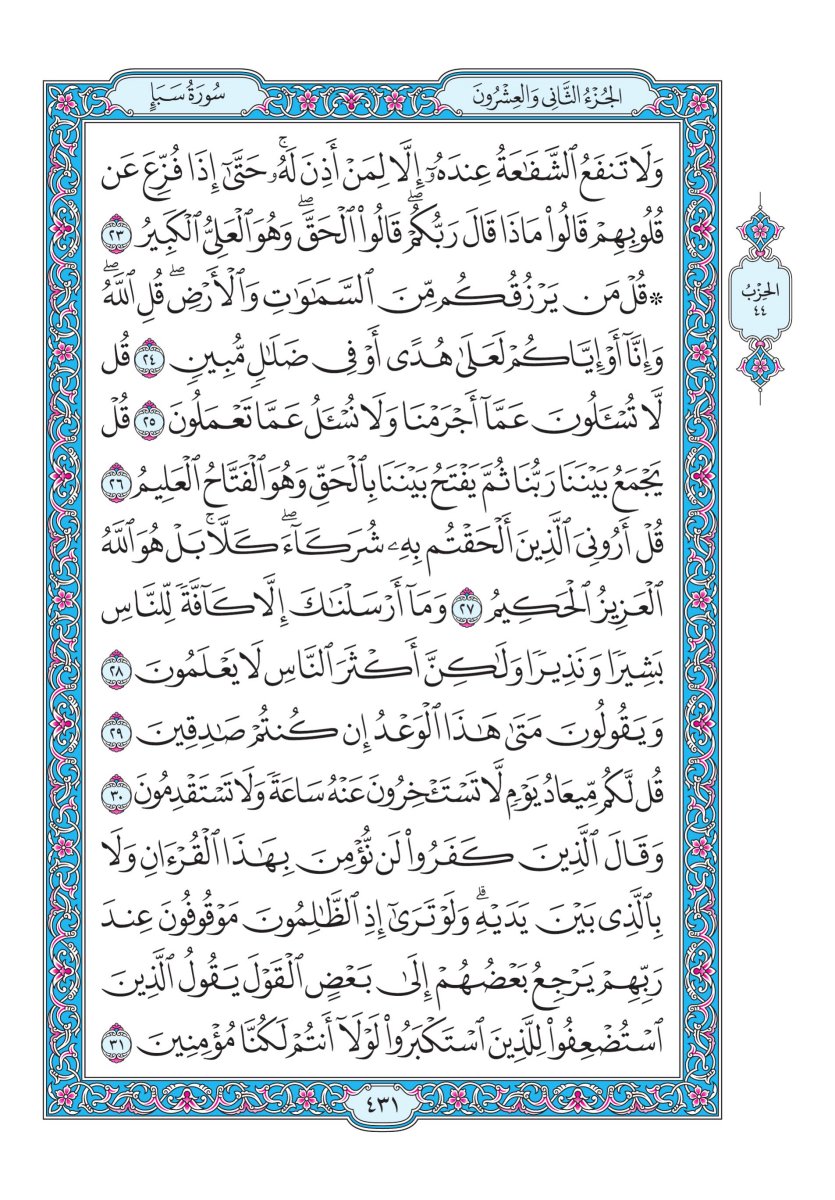 سُورَةُ سَبَإٍ
الجُزْءُ الثَّانِي وَالعِشْرُونَ
وَلَا تَنفَعُ ٱلشَّفَٰعَةُ عِندَهُۥٓ إِلَّا لِمَنْ أَذِنَ لَهُۥۚ حَتَّىٰٓ إِذَا فُزِّعَ عَن
قُلُوبِهِمْ قَالُوا۟ مَاذَا قَالَ رَبُّكُمْۖ قَالُوا۟ ٱلْحَقَّۖ وَهُوَ ٱلْعَلِىُّ ٱلْكَبِيرُ ٢٣
۞ قُلْ مَن يَرْزُقُكُم مِّنَ ٱلسَّمَٰوَٰتِ وَٱلْأَرْضِۖ قُلِ ٱللَّهُۖ
وَإِنَّآ أَوْ إِيَّاكُمْ لَعَلَىٰ هُدًى أَوْ فِى ضَلَٰلٍ مُّبِينٍ ٢٤ قُل
لَّا تُسْـَٔلُونَ عَمَّآ أَجْرَمْنَا وَلَا نُسْـَٔلُ عَمَّا تَعْمَلُونَ ٢٥ قُلْ
يَجْمَعُ بَيْنَنَا رَبُّنَا ثُمَّ يَفْتَحُ بَيْنَنَا بِٱلْحَقِّ وَهُوَ ٱلْفَتَّاحُ ٱلْعَلِيمُ ٢٦
قُلْ أَرُونِىَ ٱلَّذِينَ أَلْحَقْتُم بِهِۦ شُرَكَآءَۖ كَلَّاۚ بَلْ هُوَ ٱللَّهُ
ٱلْعَزِيزُ ٱلْحَكِيمُ ٢٧ وَمَآ أَرْسَلْنَٰكَ إِلَّا كَآفَّةً لِّلنَّاسِ
بَشِيرًا وَنَذِيرًا وَلَٰكِنَّ أَكْثَرَ ٱلنَّاسِ لَا يَعْلَمُونَ ٢٨
وَيَقُولُونَ مَتَىٰ هَٰذَا ٱلْوَعْدُ إِن كُنتُمْ صَٰدِقِينَ ٢٩
قُل لَّكُم مِّيعَادُ يَوْمٍ لَّا تَسْتَـْٔخِرُونَ عَنْهُ سَاعَةً وَلَا تَسْتَقْدِمُونَ ٣٠
وَقَالَ ٱلَّذِينَ كَفَرُوا۟ لَن نُّؤْمِنَ بِهَٰذَا ٱلْقُرْءَانِ وَلَا
بِٱلَّذِى بَيْنَ يَدَيْهِۗ وَلَوْ تَرَىٰٓ إِذِ ٱلظَّٰلِمُونَ مَوْقُوفُونَ عِندَ
رَبِّهِمْ يَرْجِعُ بَعْضُهُمْ إِلَىٰ بَعْضٍ ٱلْقَوْلَ يَقُولُ ٱلَّذِينَ
ٱسْتُضْعِفُوا۟ لِلَّذِينَ ٱسْتَكْبَرُوا۟ لَوْلَآ أَنتُمْ لَكُنَّا مُؤْمِنِينَ ٣١
الحِزْبُ
٤٤
٤٣١